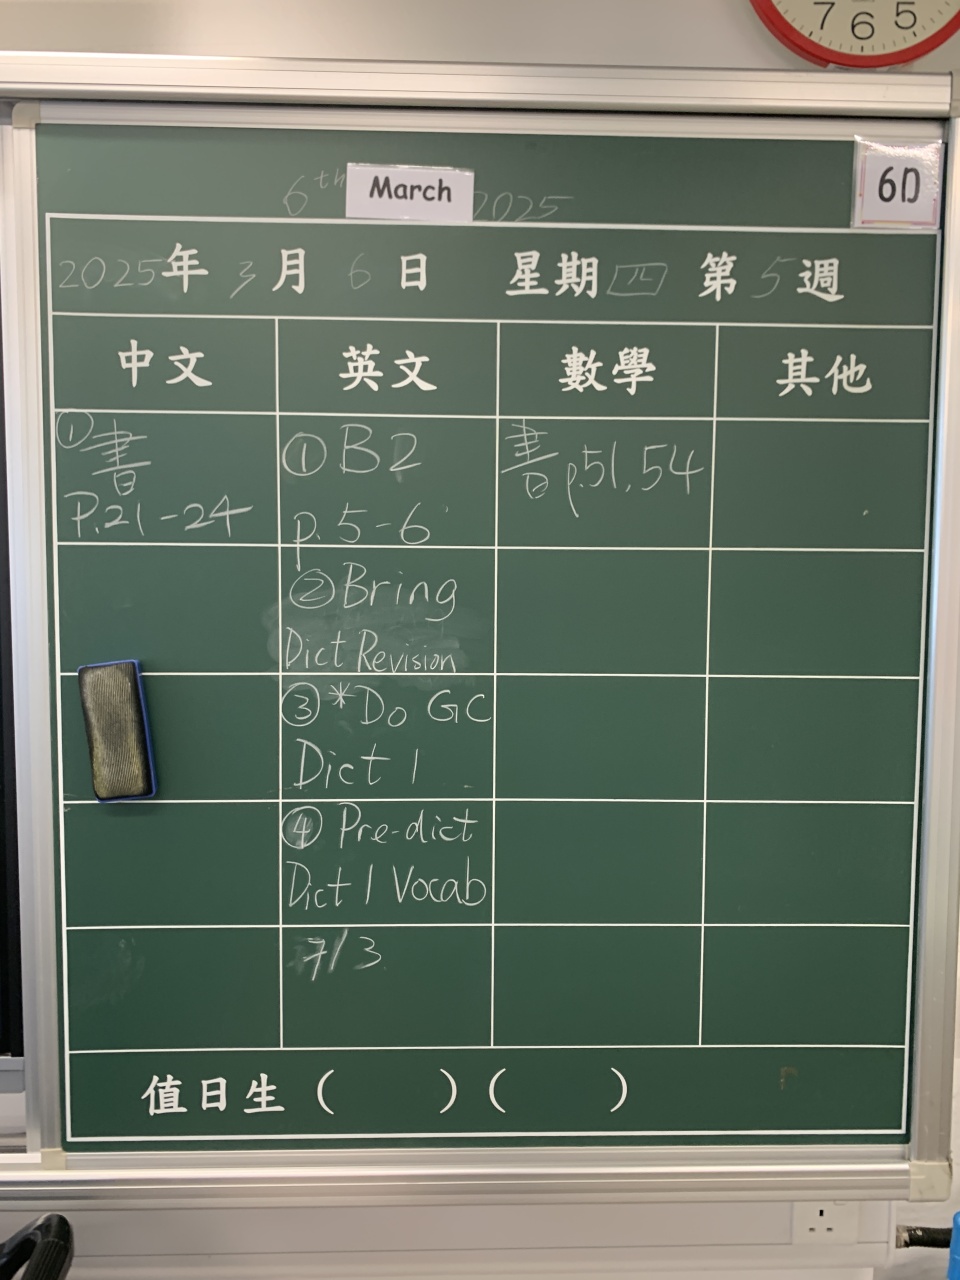 7 6 5
6th March 2025
6D
2025年 3月 6日 星期四 第5週
中文 英文 數學 其他
①書
P.21-24
①B2
p. 5-6
②Bring
Dict Revision
③*Do GC
Dict 1
④ Pre-dict
Dict 1 Vocab
7/3
書 p.51, 54
值日生 ( ) ( )